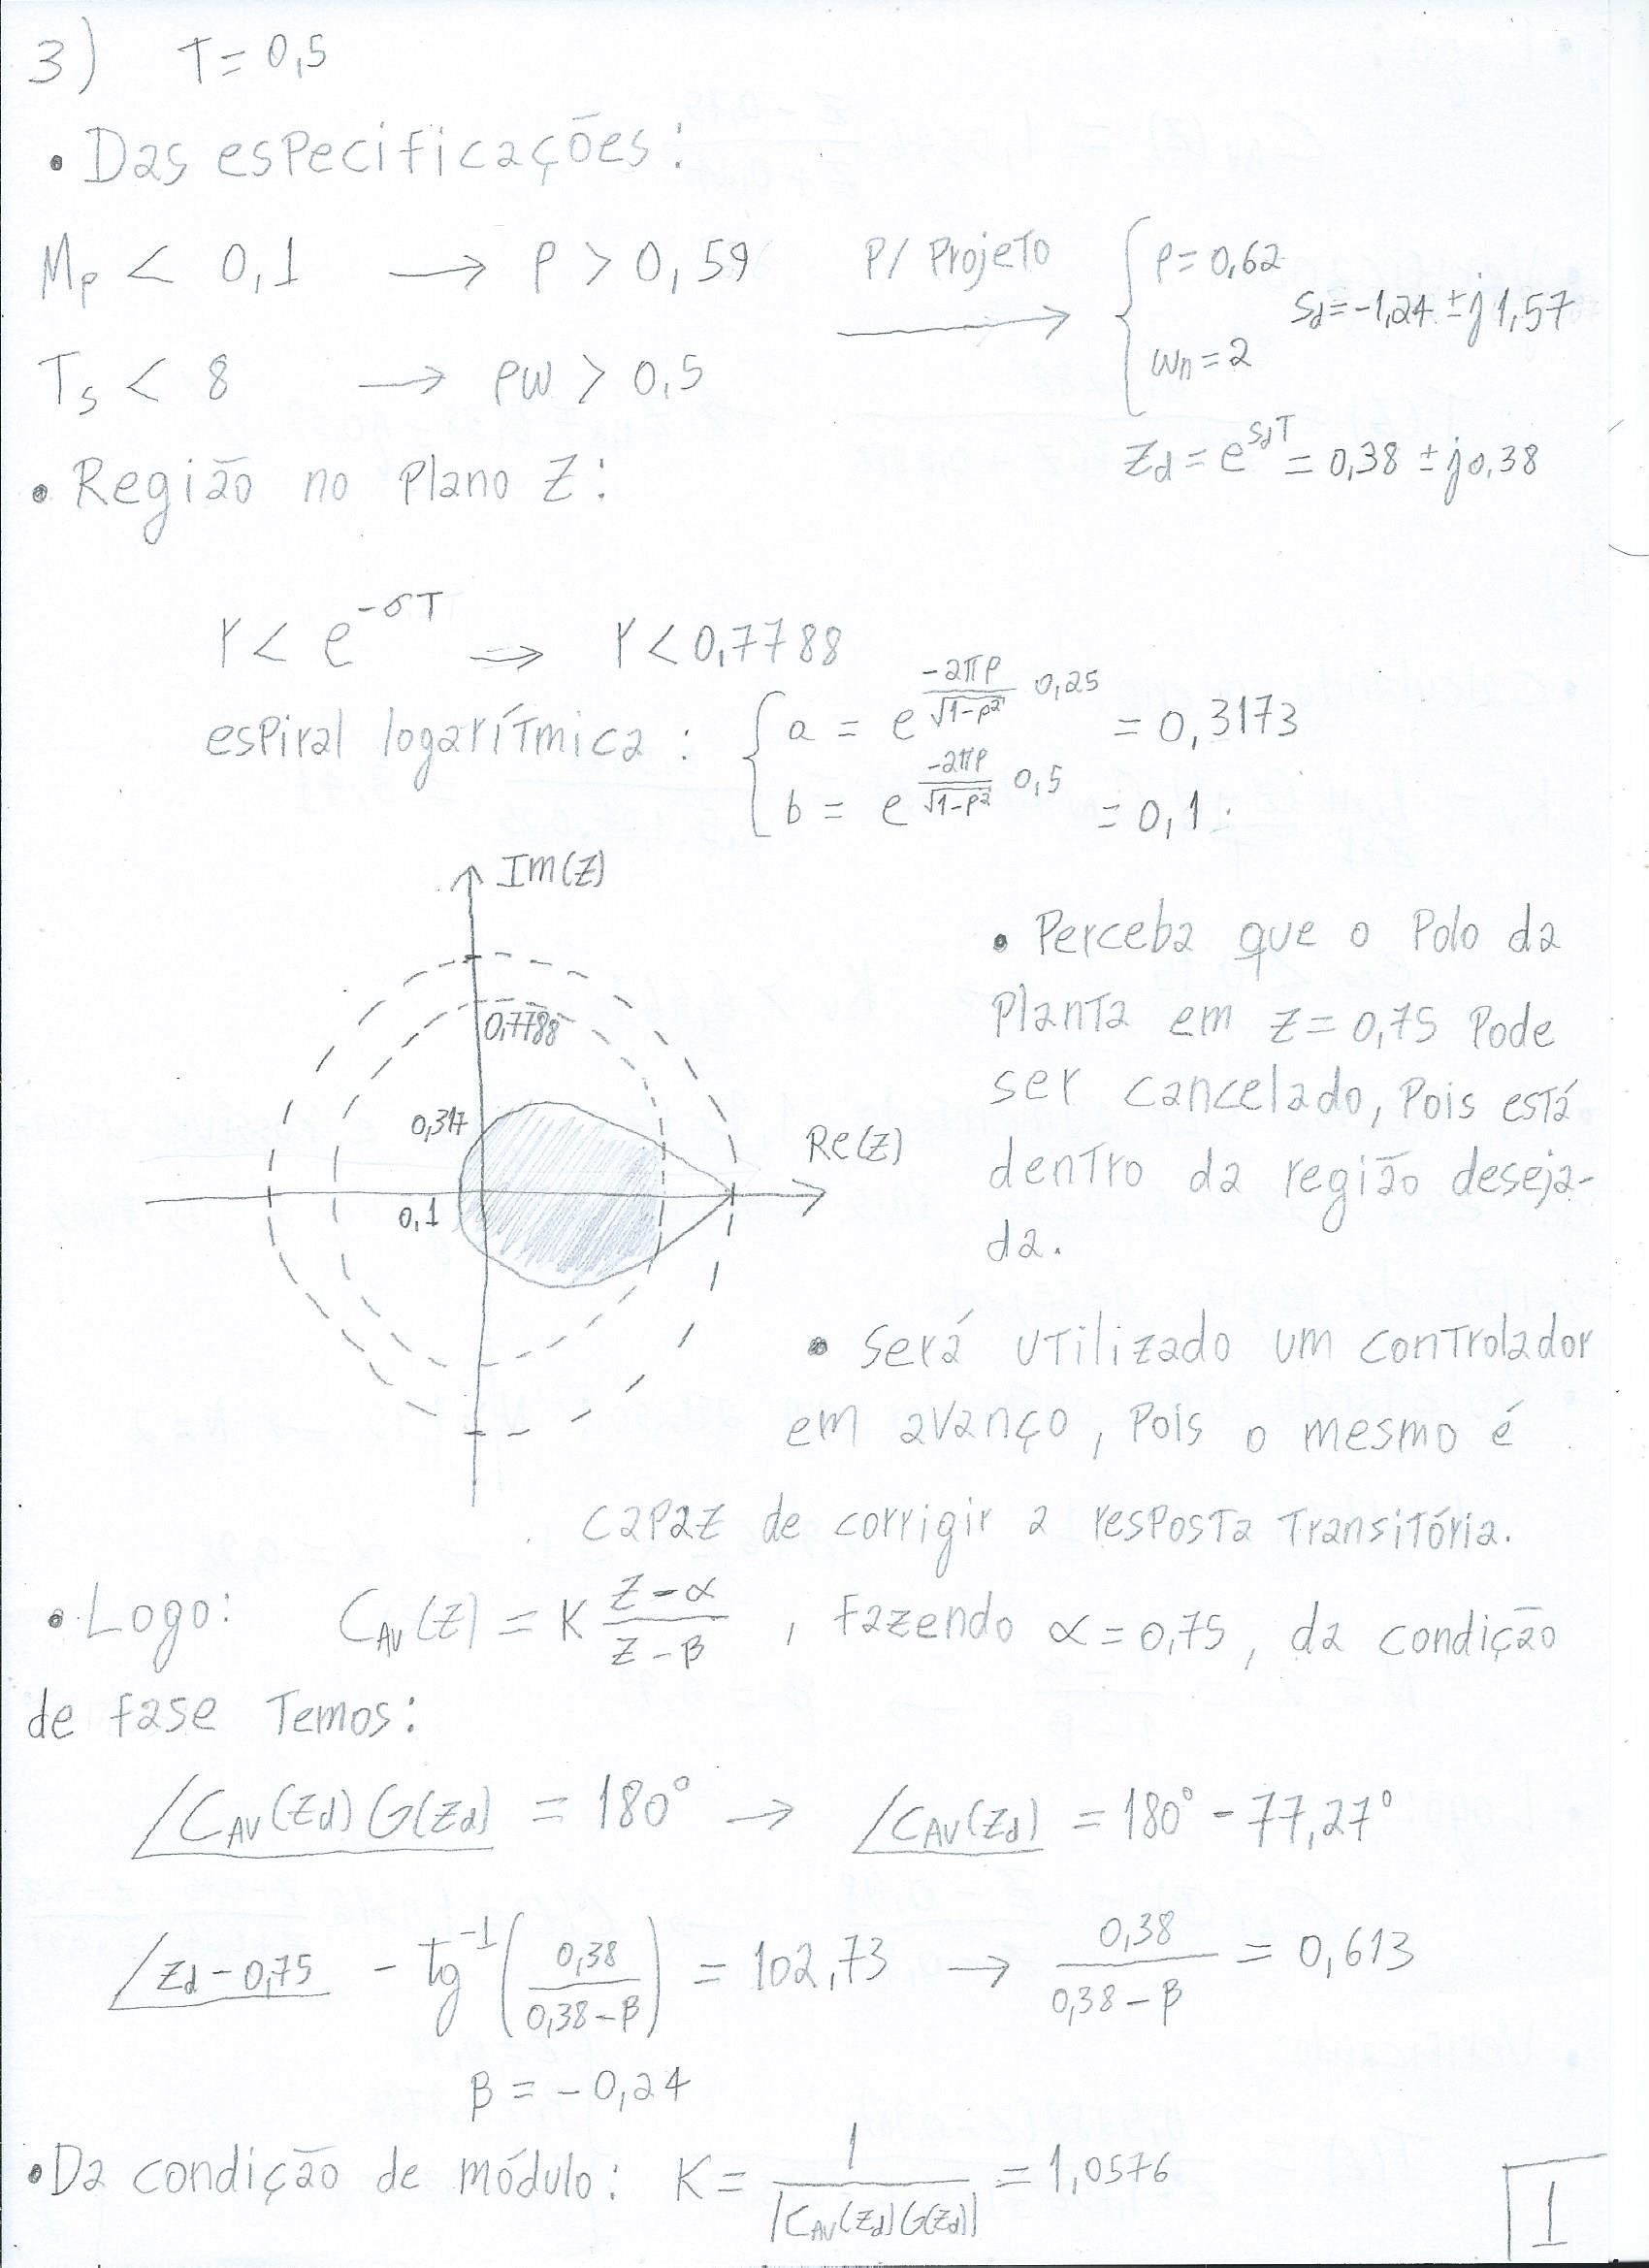 3) T = 0,5
• Das especificações:
Mp < 0,1 → ρ > 0,59 P/ Projeto → { ρ = 0,62
Sd = -1,24 ± j1,57
Ts < 8 → ρw > 0,5 wn = 2
Zd = e^{SdT} = 0,38 ± j0,38
• Região no Plano Z:
r < e^{-σT} ⇒ r < 0,7788
espiral logarítmica: { a = e^{\frac{-2πρ}{√(1-ρ²)} 0,25} = 0,3173
b = e^{\frac{-2πρ}{√(1-ρ²)} 0,5} = 0,1
Im(Z)
0,7788
0,317
Re(Z)
0,1
• Perceba que o Polo da
Planta em z = 0,75 Pode
ser cancelado, Pois está
dentro da região deseja-
da.
• Será utilizado um controlador
em avanço, Pois o mesmo é
capaz de corrigir a resposta transitória.
• Logo: C_{AV}(Z) = K \frac{Z - α}{Z - β} , fazendo α = 0,75, da condição
de fase Temos:
∠C_{AV}(Zd) G(Zd) = 180° → ∠C_{AV}(Zd) = 180° - 77,27°
∠Zd - 0,75 - tg^{-1}(\frac{0,38}{0,38 - β}) = 102,73 → \frac{0,38}{0,38 - β} = 0,613
β = -0,24
• Da condição de módulo: K = \frac{1}{|C_{AV}(Zd) G(Zd)|} = 1,0576
1